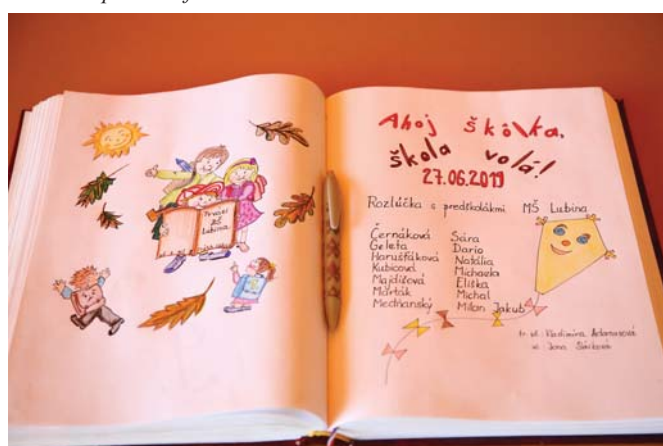 Prváci
ZŠ
Lubina
Ahoj škôlka,
škola volá!
27.06.2019
Rozlúčka s predškolákmi MŠ Lubina
Černáková Sára
Geleta Dario
Harušťáková Natália
Kubicová Michaela
Majdišová Eliška
Marták Michal
Medňanský Milan Jakub
tr. uč.: Vladimíra Adamusová
uč. Jana